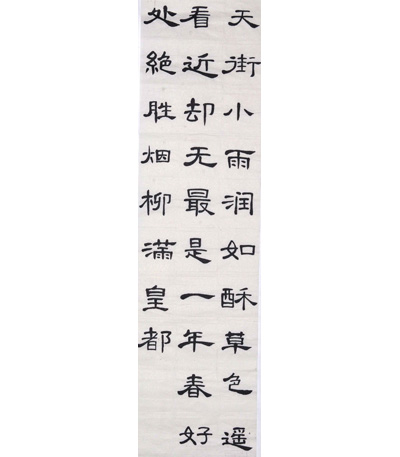 天街小雨润如酥草色遥
看近却无最是一年春好
处絕胜烟柳滿皇都